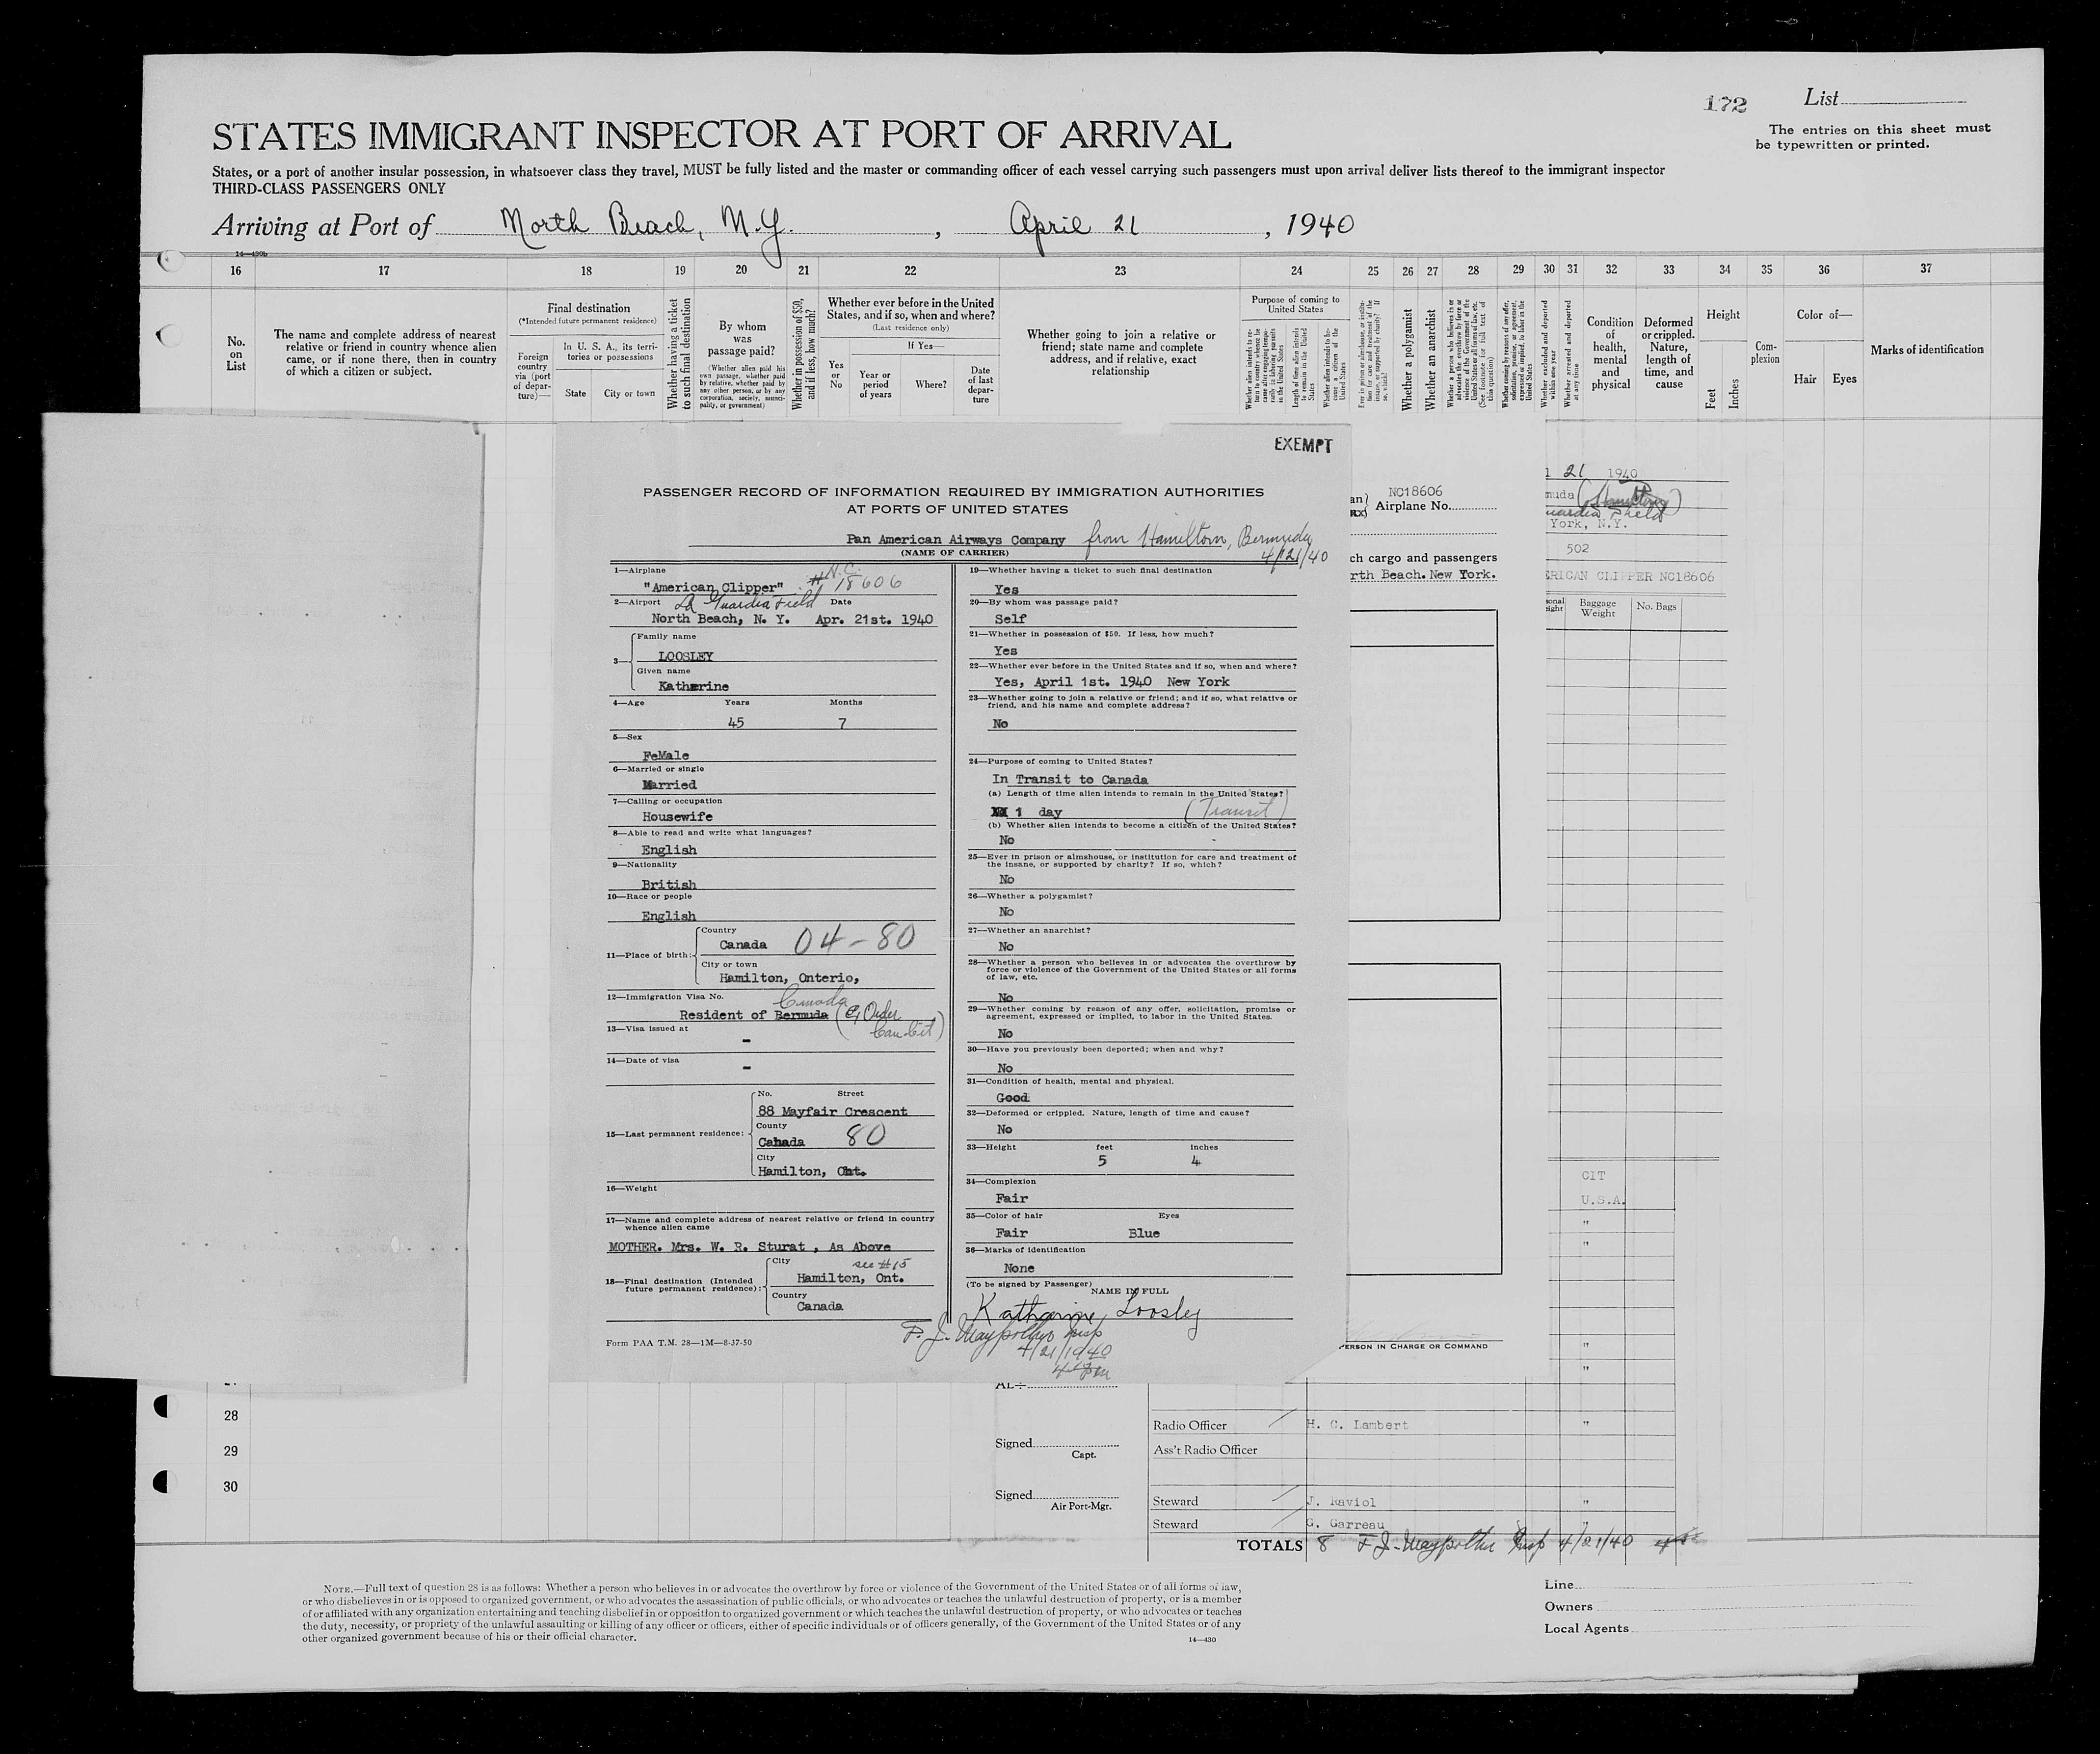 172
List
The entries on this sheet must
be typewritten or printed.
STATES IMMIGRANT INSPECTOR AT PORT OF ARRIVAL
States, or a port of another insular possession, in whatsoever class they travel, MUST be fully listed and the master or commanding officer of each vessel carrying such passengers must upon arrival deliver lists thereof to the immigrant inspector
THIRD-CLASS PASSENGERS ONLY
Arriving at Port of North Beach, N.Y. , April 21 , 1940
14—430b
16 17 18 19 20 21 22 23 24 25 26 27 28 29 30 31 32 33 34 35 36 37
No.
on
List
The name and complete address of nearest
relative or friend in country whence alien
came, or if none there, then in country
of which a citizen or subject.
Final destination
(*Intended future permanent residence)
Foreign
country
via (port
of depar-
ture)—
In U. S. A., its terri-
tories or possessions
State City or town
Whether having a ticket
to such final destination
By whom
was
passage paid?
(Whether alien paid his
own passage, whether paid
by relative, whether paid by
any other person, or by any
corporation, society, munici-
pality, or government)
Whether in possession of $50,
and if less, how much?
Whether ever before in the United
States, and if so, when and where?
(Last residence only)
Yes
or
No
If Yes—
Year or
period
of years
Where?
Date
of last
depar-
ture
Whether going to join a relative or
friend; state name and complete
address, and if relative, exact
relationship
Purpose of coming to
United States
Length of time alien intends
to remain in the United
States
Whether alien intends to be-
come a citizen of the
United States
Whether a polygamist
Whether an anarchist
Whether excluded and deported
within one year
Whether arrested and deported
at any time
Condition
of
health,
mental
and
physical
Deformed
or crippled.
Nature,
length of
time, and
cause
Height
Feet
Inches
Com-
plexion
Color of—
Hair Eyes
Marks of identification
EXEMPT
PASSENGER RECORD OF INFORMATION REQUIRED BY IMMIGRATION AUTHORITIES
AT PORTS OF UNITED STATES
Pan American Airways Company from Hamilton, Bermuda
(NAME OF CARRIER) 4/21/40
1—Airplane
"American Clipper" # N.C. 18606
2—Airport La Guardia Field Date
North Beach, N. Y. Apr. 21st. 1940
3—
Family name
LOOSLEY
Given name
Katharine
4—Age Years Months
45 7
5—Sex
FeMale
6—Married or single
Married
7—Calling or occupation
Housewife
8—Able to read and write what languages?
English
9—Nationality
British
10—Race or people
English
11—Place of birth:
Country
Canada 04-80
City or town
Hamilton, Onterio,
12—Immigration Visa No. Canada
Resident of Bermuda (Ex Order
13—Visa issued at Can Cit)
-
14—Date of visa
-
15—Last permanent residence:
No. Street
88 Mayfair Crescent
County
Canada 80
City
Hamilton, Ont.
16—Weight
17—Name and complete address of nearest relative or friend in country
whence alien came
MOTHER. Mrs. W. R. Sturat , As Above
18—Final destination (Intended
future permanent residence):
City see #15
Hamilton, Ont.
Country
Canada
Form PAA T.M. 28—1M—8-37-50
19—Whether having a ticket to such final destination
Yes
20—By whom was passage paid?
Self
21—Whether in possession of $50. If less, how much?
Yes
22—Whether ever before in the United States and if so, when and where?
Yes, April 1st. 1940 New York
23—Whether going to join a relative or friend; and if so, what relative or
friend, and his name and complete address?
No
24—Purpose of coming to United States?
In Transit to Canada
(a) Length of time alien intends to remain in the United States?
1 day (Transit)
(b) Whether alien intends to become a citizen of the United States?
No
25—Ever in prison or almshouse, or institution for care and treatment of
the insane, or supported by charity? If so, which?
No
26—Whether a polygamist?
No
27—Whether an anarchist?
No
28—Whether a person who believes in or advocates the overthrow by
force or violence of the Government of the United States or all forms
of law, etc.
No
29—Whether coming by reason of any offer, solicitation, promise or
agreement, expressed or implied, to labor in the United States.
No
30—Have you previously been deported; when and why?
No
31—Condition of health, mental and physical.
Good
32—Deformed or crippled. Nature, length of time and cause?
No
33—Height feet inches
5 4
34—Complexion
Fair
35—Color of hair Eyes
Fair Blue
36—Marks of identification
None
(To be signed by Passenger)
NAME IN FULL
Katharine Loosley
F. J. Maypother Insp
4/21/1940
an) NC18606
Airplane No.
ch cargo and passengers
rth Beach. New York.
ERSON IN CHARGE OR COMMAND
21 1940
muda (Hamilton)
uardia Field
York, N.Y.
502
ERICAN CLIPPER NC18606
Baggage
Weight
No. Bags
CIT
U.S.A.
"
"
"
"
28
29
30
Signed
Capt.
Signed
Air Port-Mgr.
Radio Officer H. C. Lambert "
Ass't Radio Officer
Steward J. Raviol "
Steward G. Garreau "
TOTALS 8 F J. Maypother Insp 4/21/40
NOTE.—Full text of question 28 is as follows: Whether a person who believes in or advocates the overthrow by force or violence of the Government of the United States or of all forms of law,
or who disbelieves in or is opposed to organized government, or who advocates the assassination of public officials, or who advocates or teaches the unlawful destruction of property, or is a member
of or affiliated with any organization entertaining and teaching disbelief in or opposition to organized government or which teaches the unlawful destruction of property, or who advocates or teaches
the duty, necessity, or propriety of the unlawful assaulting or killing of any officer or officers, either of specific individuals or of officers generally, of the Government of the United States or of any
other organized government because of his or their official character.
14—430
Line
Owners
Local Agents